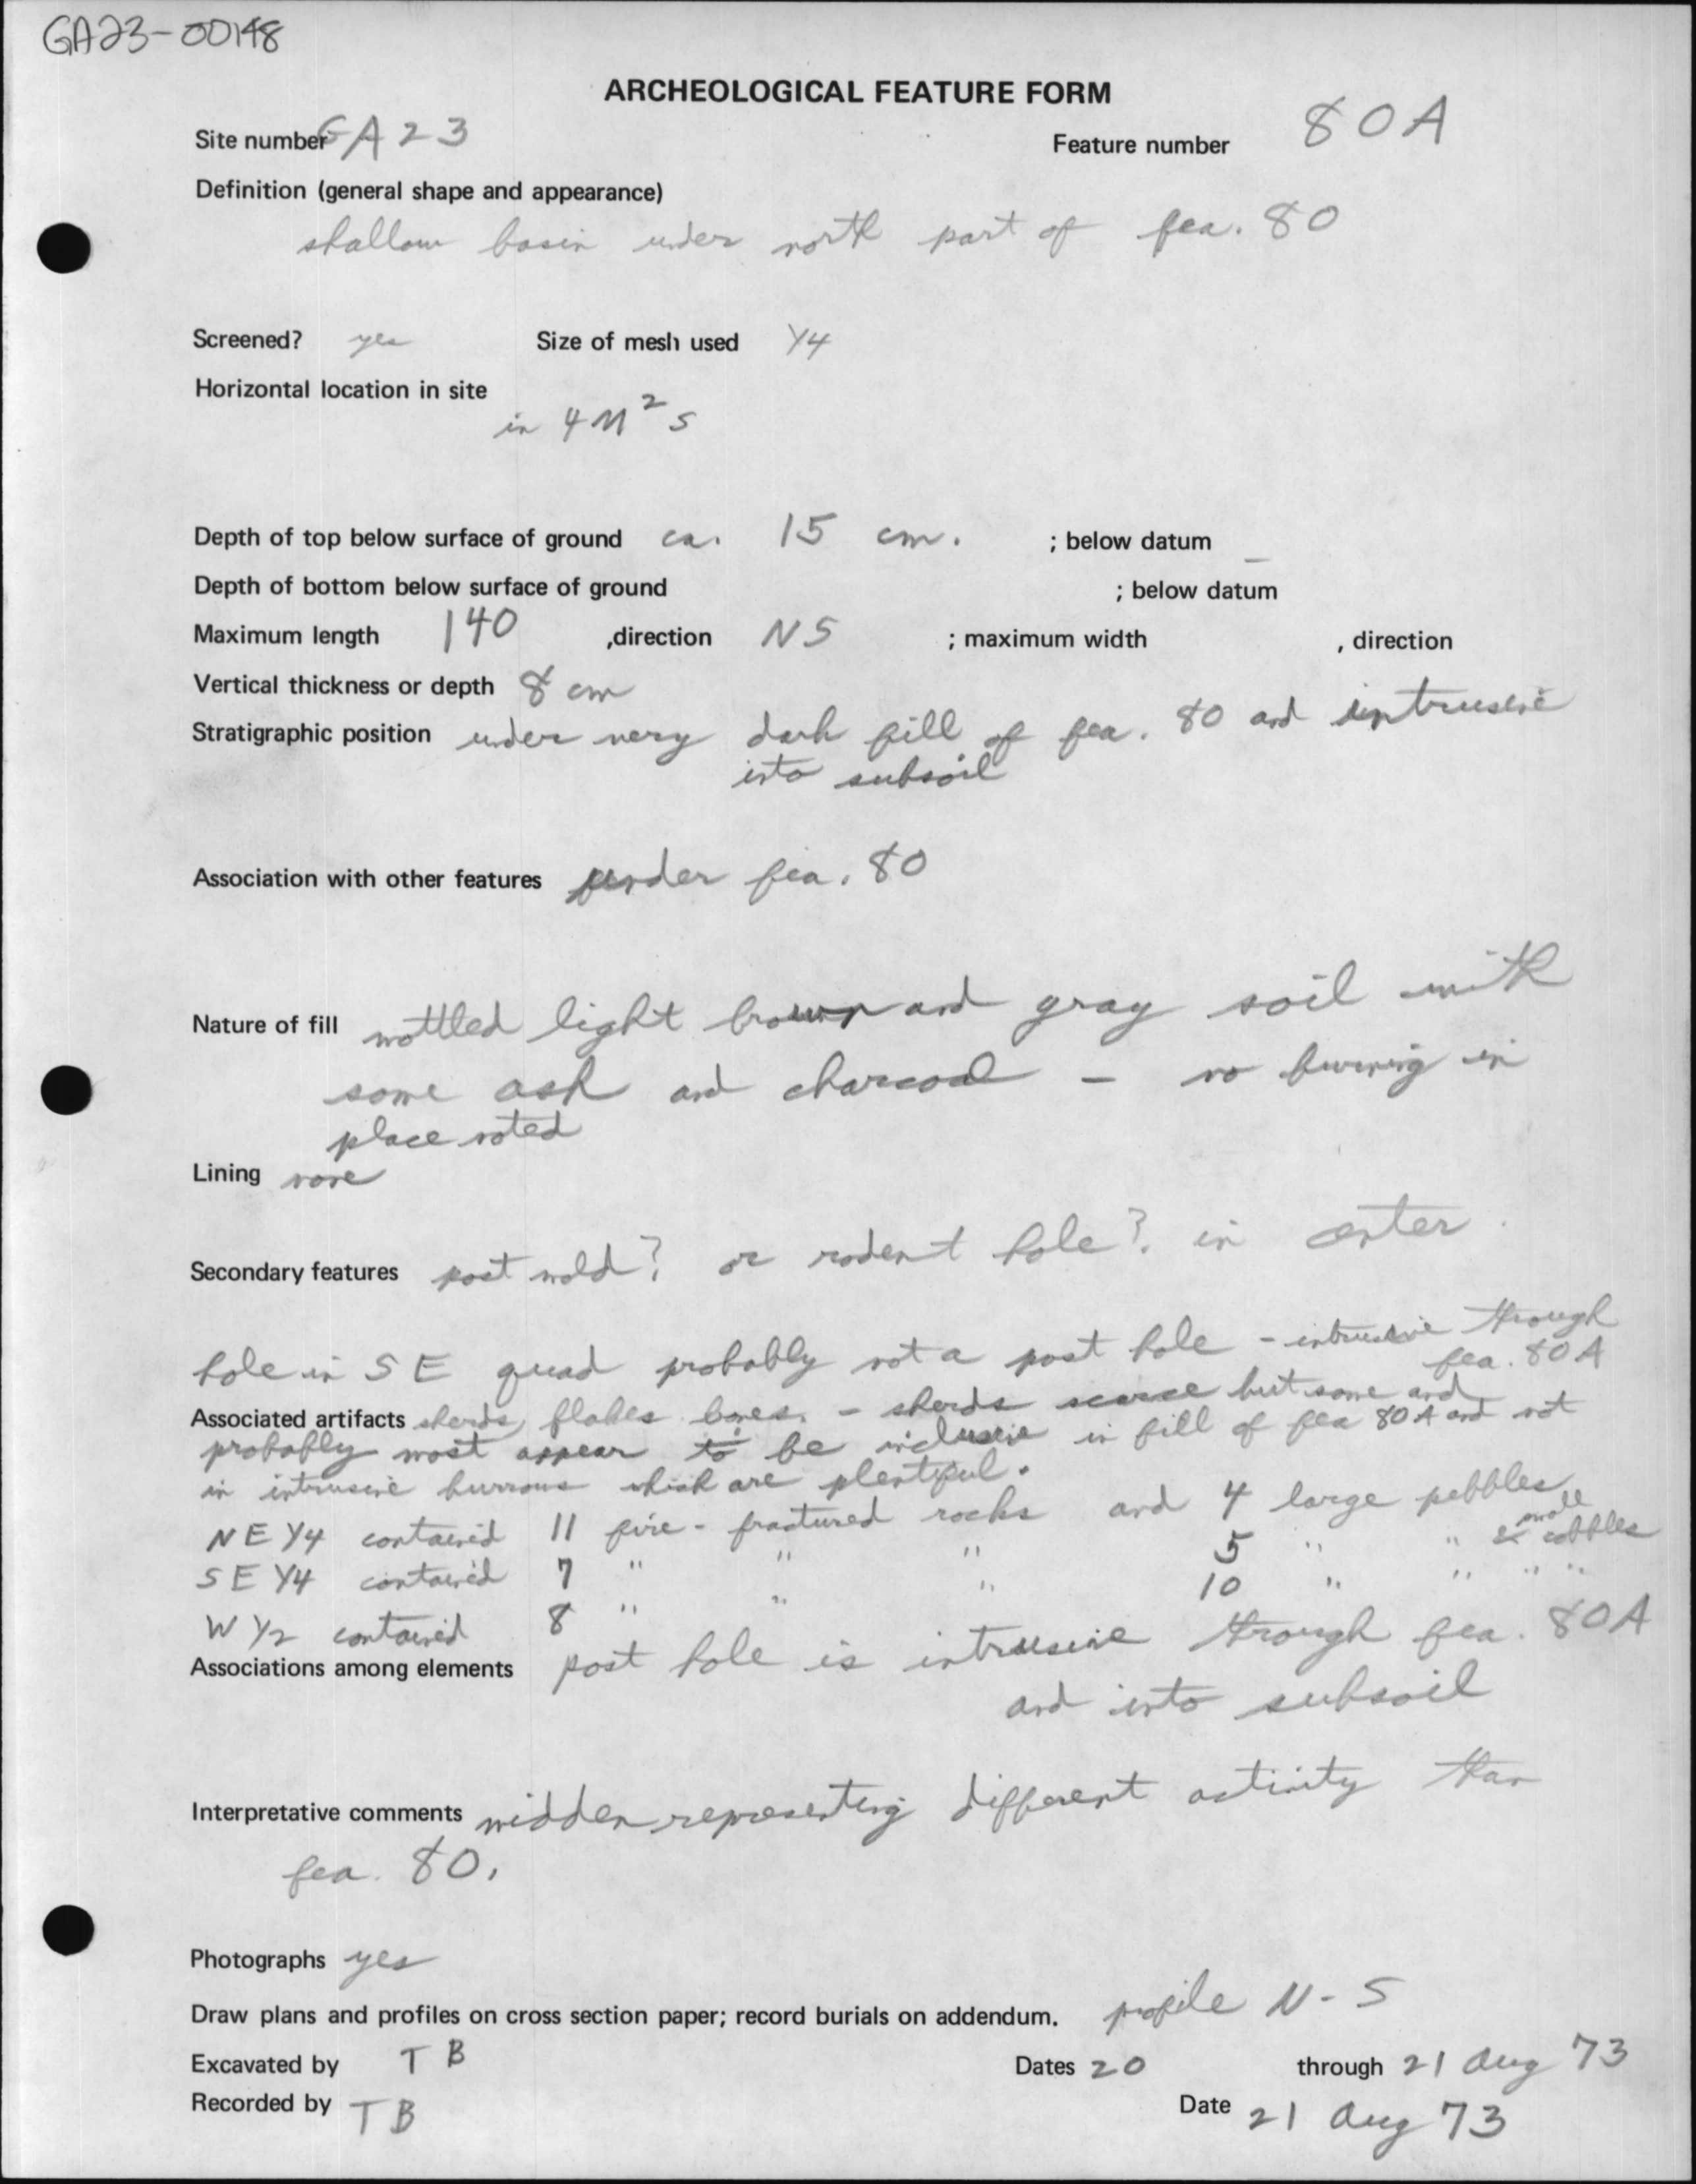 GA23-00148
ARCHEOLOGICAL FEATURE FORM
Site number GA23 Feature number 80A
Definition (general shape and appearance)
shallow basin under north part of fea. 80
Screened? yes Size of mesh used 1/4
Horizontal location in site
in 4M²s
Depth of top below surface of ground ca. 15 cm. ; below datum _
Depth of bottom below surface of ground ; below datum
Maximum length 140 ,direction NS ; maximum width , direction
Vertical thickness or depth 8 cm
Stratigraphic position under very dark fill of fea. 80 and intrusive
into subsoil
Association with other features under fea. 80
Nature of fill mottled light brown and gray soil with
some ash and charcoal – no burning in
place noted
Lining none
Secondary features post mold? or rodent hole? in center
hole in SE quad probably not a post hole – intrusive through
fea. 80A
Associated artifacts sherds, flakes bones. – sherds scarce but some and
probably most appear to be inclusive in fill of fea 80A and not
in intrusive burrows which are plentiful.
NE 1/4 contained 11 fire-fractured rocks and 4 large pebbles
SE 1/4 contained 7 " " " 5 " " & small cobbles
W 1/2 contained 8 " " " 10 " " " "
Associations among elements post hole is intrusive through fea. 80A
and into subsoil
Interpretative comments midden representing different activity than
fea. 80.
Photographs yes
Draw plans and profiles on cross section paper; record burials on addendum. profile N-S
Excavated by TB Dates 20 through 21 Aug 73
Recorded by TB Date 21 Aug 73